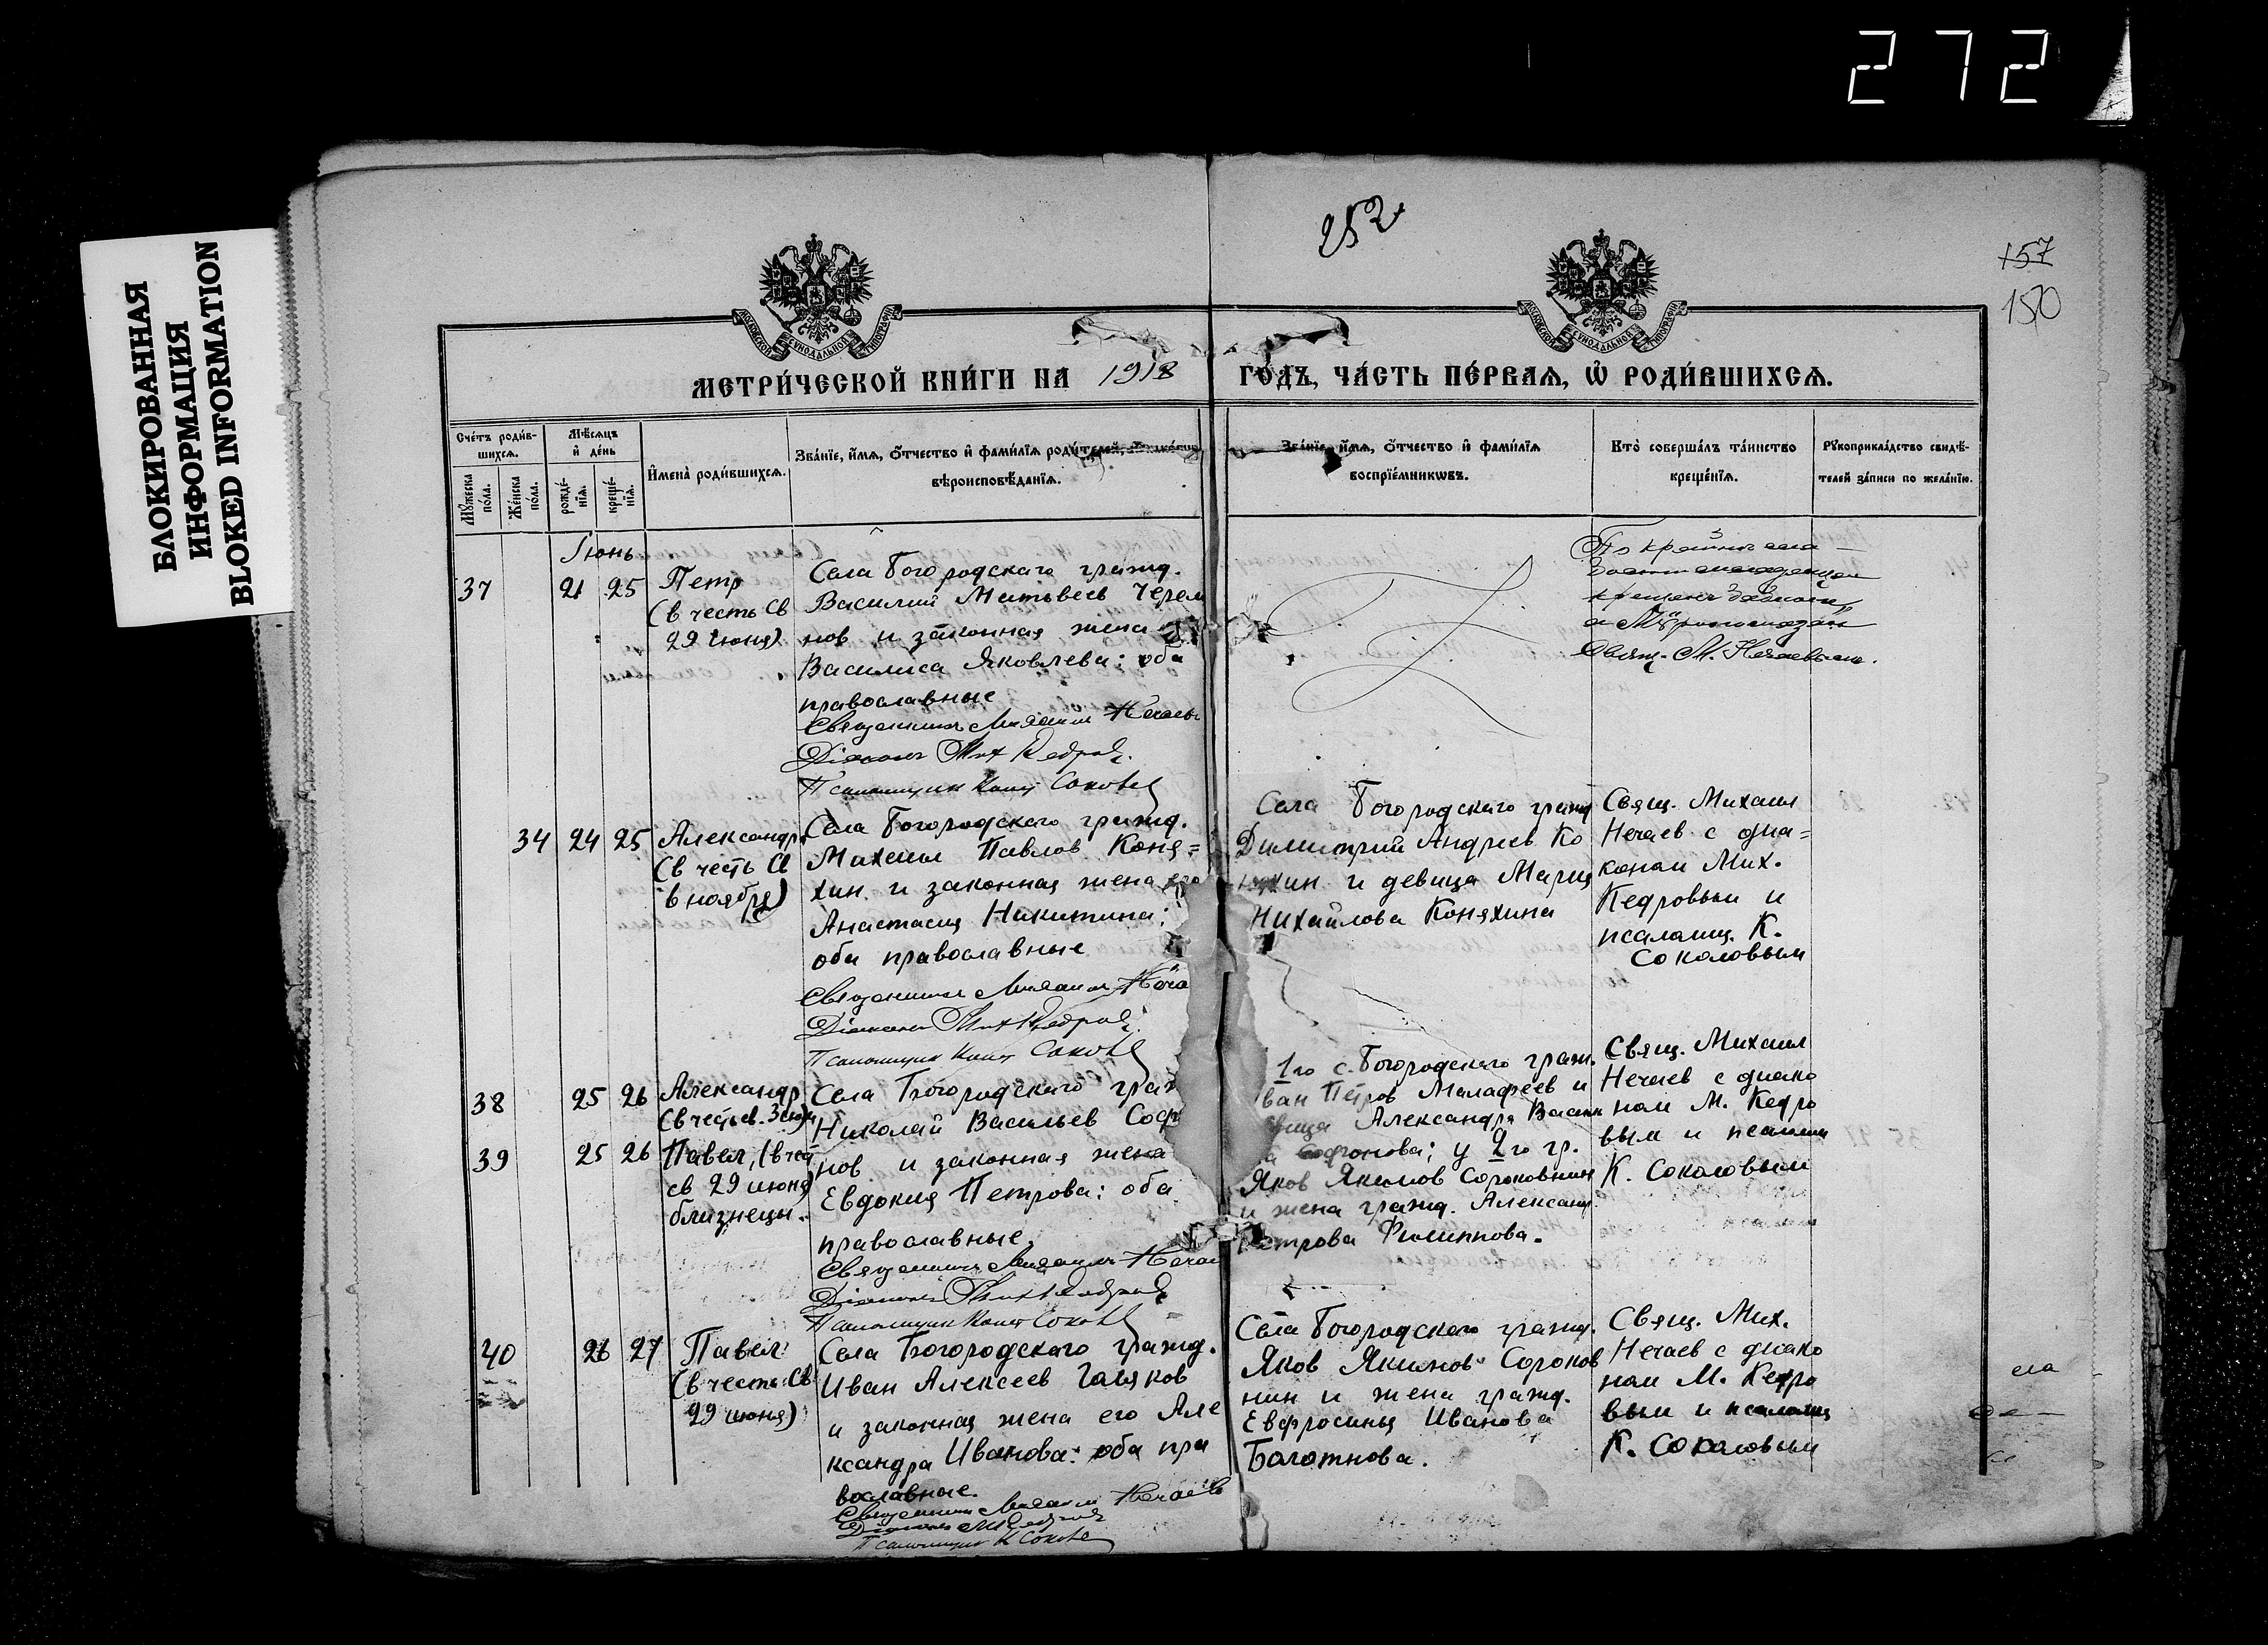 272
БЛОКИРОВАННАЯ
ИНФОРМАЦИЯ
BLOKED INFORMATION
252
157
150
МОСКОВСКОЙ СУНОДАЛЬНОЙ ТИПОГРАФІИ
МОСКОВСКОЙ СУНОДАЛЬНОЙ ТИПОГРАФІИ
МЕТРИ́ЧЕСКОЙ КНИ́ГИ НА 1918 ГО́ДЪ, ЧА́СТЬ ПЕ́РВАѦ, Ѡ РОДИ́ВШИХСѦ.
Сче́тъ роди́в-
шихсѧ.
Мѣ́сѧцъ
и де́нь
Мꙋ́жеска
по́ла.
Же́нска
по́ла.
рожде́-
нїѧ.
креще́-
нїѧ.
Имена̀ роди́вшихсѧ.
Зва́нїе, и́мѧ, о́тчество и фами́лїѧ роди́телей,
вѣроисповѣ́данїѧ.
Зва́нїе, и́мѧ, о́тчество и фами́лїѧ
воспрїе́мникѡвъ.
Кто̀ соверша́лъ та́инство
креще́нїѧ.
Рꙋкоприкла́дство свидѣ́-
телей за́писи по жела́нїю.
Июнь
37 21 25 Петр
(в честь св
29 июня)
Села Богородскаго гражд.
Василий Матвеев Черем
нов и законная жена
Василиса Яковлева: оба
православные
Священник Михаил Нечаев
Диакон Мих Кедров
Псаломщик Конст Соколов
крещен
Свящ. М. Нечаевым.
34 24 25 Александра
(в честь св
6 ноября)
Села Богородскаго гражд.
Михаил Павлов Коня=
хин и законная жена его
Анастасия Никитина:
оба православные
Священник Михаил Неча
Диакон Мих Кедров
Псаломщик Конст Соколов
Села Богородскаго гражд
Димитрий Андреев Ко
нхин и девица Мария
Михайлова Коняхина
Свящ. Михаил
Нечаев с диа=
коном Мих.
Кедровым и
псаломщ. К.
Соколовым
38 25 26 Александр
39 25 26 Павел, (в чест
св 29 июня)
близнецы.
Села Богородскаго граж
Николай Васильев Соф
нов и законная жена
Евдокия Петрова: оба
православные.
Священник Михаил Нечаев
Диакон Мих Кедров
Псаломщик Конст Соколов
1го с. Богородскаго граж.
Иван Петров Малафеев и
вица Александра Васил
а Софронова; у 2го гр.
Яков Якимов Сороковнин
и жена гражд. Александ
Петрова Филиппова.
Свящ. Михаил
Нечаев с диако
ном М. Кедро
вым и псаломщ
К. Соколовым
40 26 27 Павел
(в честь св
29 июня)
Села Богородскаго гражд.
Иван Алексеев Галяков
и законная жена его Але
ксандра Иванова: оба пра
вославные.
Священник Михаил Нечаев
Диакон М Кедров
Псаломщик К Соколов
Села Богородскаго гражд.
Яков Якимов Сороков
нин и жена гражд.
Евфросиния Иванова
Болотнова.
Свящ. Мих.
Нечаев с диако
ном М. Кедро
вым и псаломщ
К. Соколовым